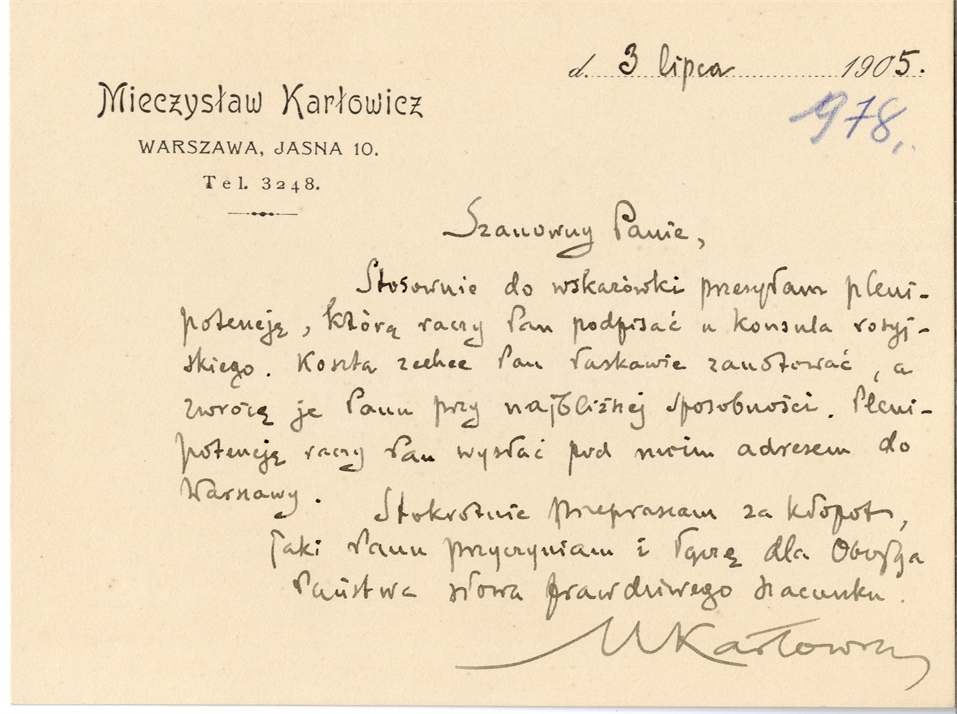 d. 3 lipca 1905.
Mieczysław Karłowicz
WARSZAWA, JASNA 10.
Tel. 3248.
978.
Szanowny Panie,
Stosownie do wskazówki przesyłam pleni-
potencję, którą raczy Pan podpisać u konsula rosyj-
skiego. Koszta zechce Pan łaskawie zanotować, a
zwrócę je Panu przy najbliższej sposobności. Pleni-
potencję raczy Pan wysłać pod moim adresem do
Warszawy.
Stokrotnie przepraszam za kłopot,
jaki Panu przyczyniam i łączę dla Obojga
Państwa słowa prawdziwego szacunku.
MKarłowicz